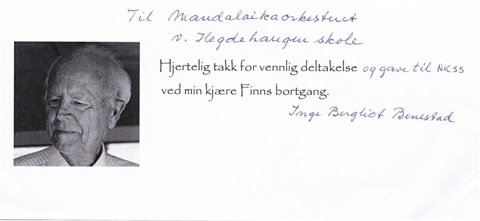 Til Mandalaikaorkesteret
v. Hegdehaugen skole
Hjertelig takk for vennlig deltakelse og gave til AKSS
ved min kjære Finns bortgang.
Inge Bergliot Benestad